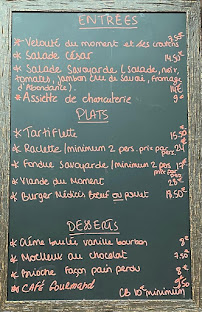 ENTRÉES
* Velouté du moment et ses croutons
* Salade César 14.50€
* Salade Savoyarde (salade, noix,
tomates, jambon cru de savoie, fromage
d'Abondance). 14€
* Assiette de charcuterie 9€
PLATS
* Tartiflette 15.50€
* Raclette/minimum 2 pers. prix pers 24€
* Fondue Savoyarde/minimum 2 pers
* Viande du Moment 28€
* Burger Médicis boeuf ou poulet 18.50€
DESSERTS
* Crème brulée vanille bourbon 8€
* Moelleux au chocolat 7.50€
* Brioche façon pain perdu 8€
* CAFÉ Gourmand 9.50
CB 10€ minimum